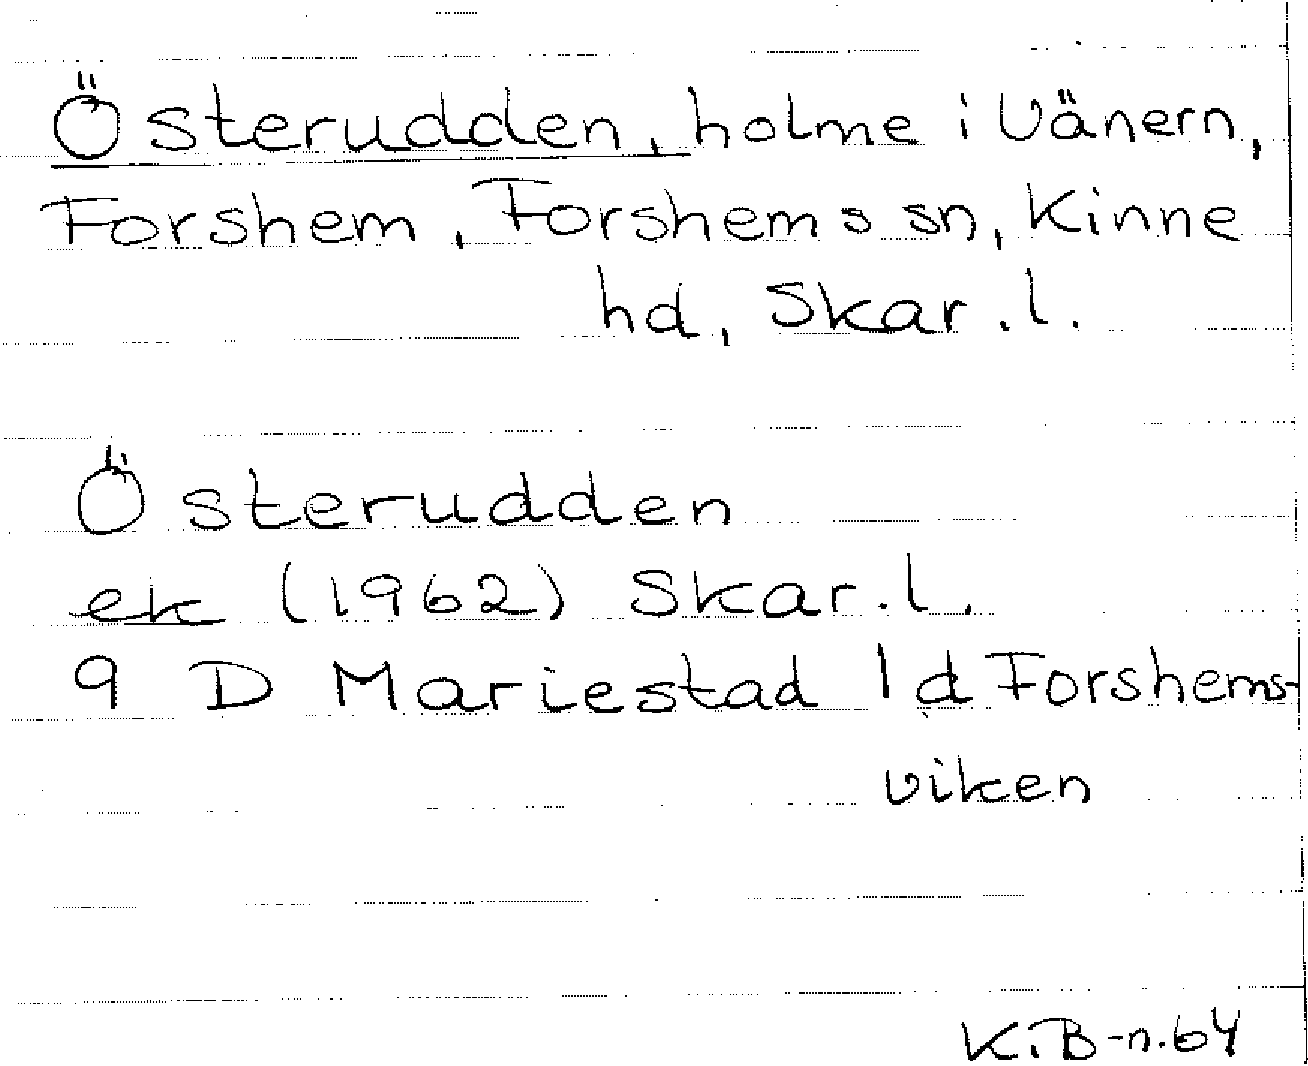 Österudden, holme i Vänern,
Forshem, Forshems sn, Kinne
hd, Skar.l.
Österudden
ek (1962) Skar.l.
9 D Mariestad 1d Forshems-
viken
K.B-n.64